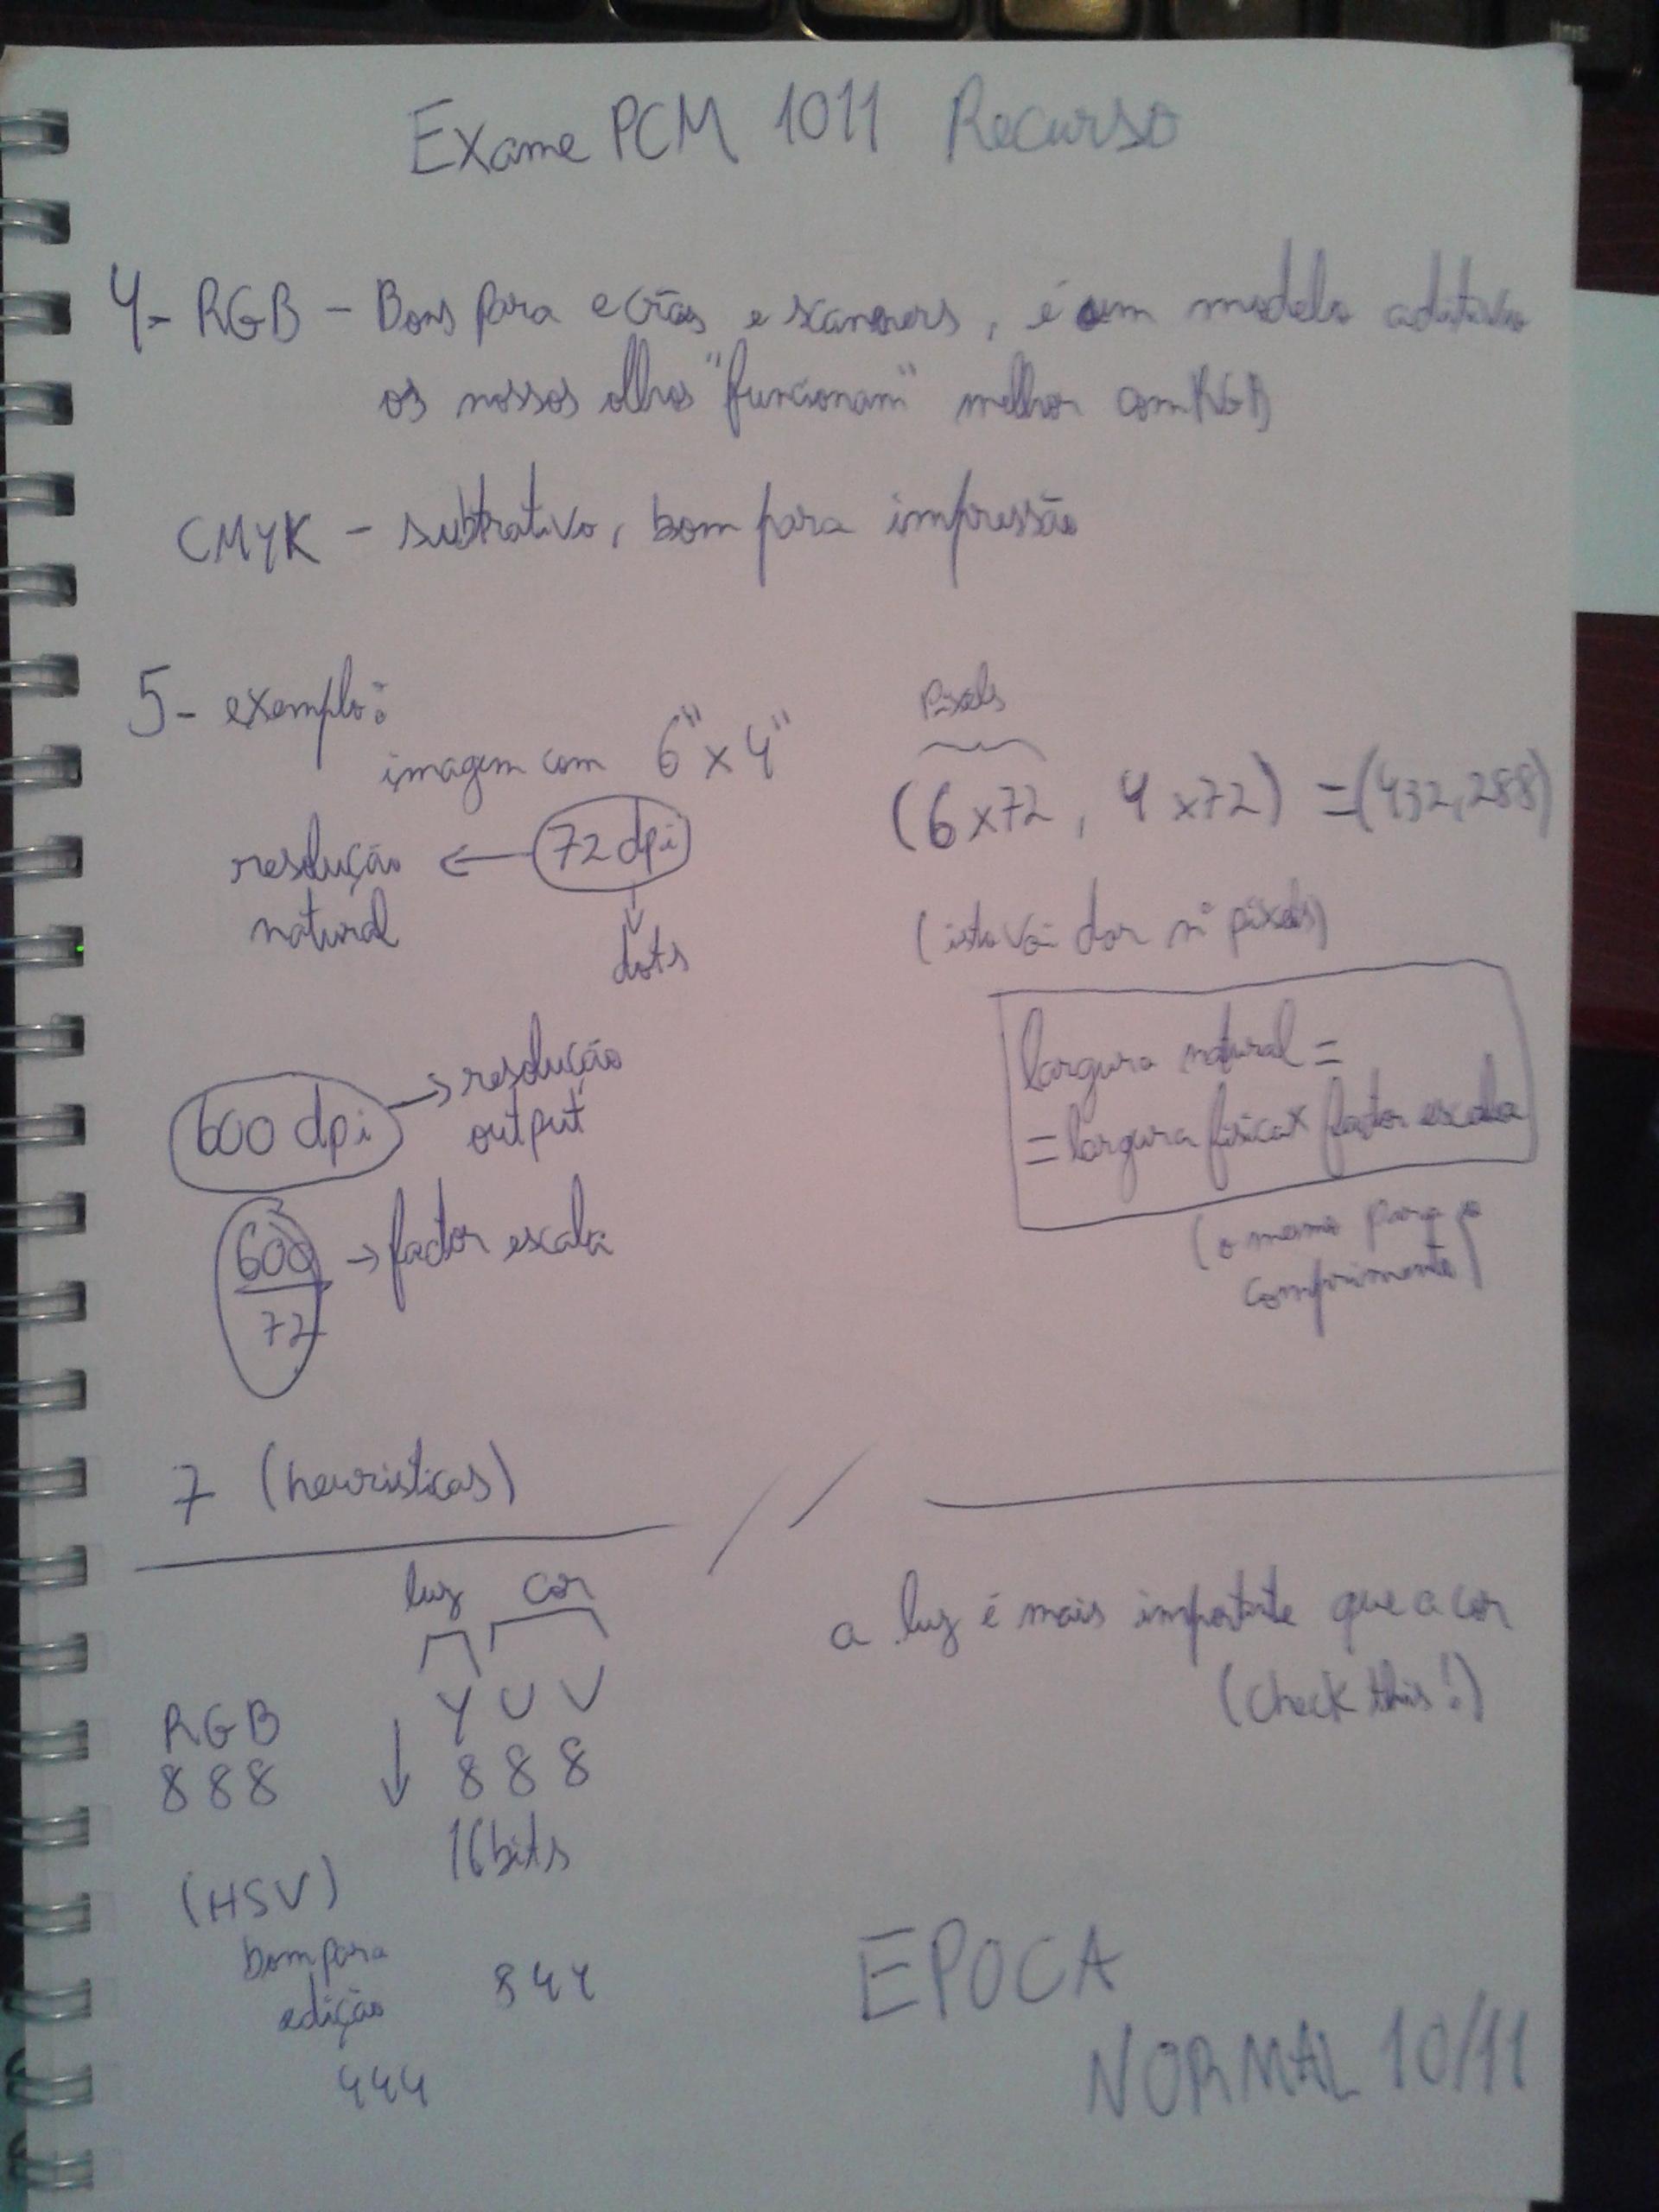 Exame PCM 1011 Recurso
4- RGB - Bons para ecrãs e scanners, é um modelo aditivo
os nossos olhos "funcionam" melhor com RGB
CMYK - subtrativo, bom para impressão
5- exemplo:
imagem com 6" x 4"
72 dpi
resolução
natural
dots
Pixels
(6x72, 4x72) = (432,288)
(isto vai dar nº pixels)
600 dpi
resolução
output
600
72
factor escala
largura natural =
= largura física x factor escala
(o mesmo para o
comprimento)
7 (heuristicas)
luz cor
Y U V
8 8 8
16 bits
844
RGB
8 8 8
(HSV)
bom para
edição
444
a luz é mais importante que a cor
(check this!)
EPOCA
NORMAL 10/11